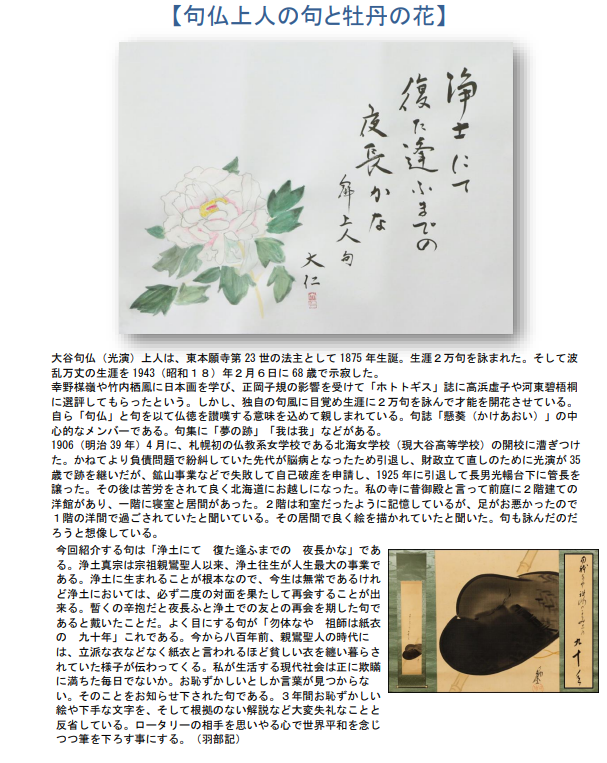 【句仏上人の句と牡丹の花】
浄土にて
復た逢ふまでの
夜長かな
上人句
大仁
大谷句仏（光演）上人は、東本願寺第23世の法主として1875年生誕。生涯２万句を詠まれた。そして波
乱万丈の生涯を1943（昭和１８）年２月６日に68歳で示寂した。
幸野楳嶺や竹内栖鳳に日本画を学び、正岡子規の影響を受けて「ホトトギス」誌に高浜虚子や河東碧梧桐
に選評してもらったという。しかし、独自の句風に目覚め生涯に２万句を詠んで才能を開花させている。
自ら「句仏」と句を以て仏徳を讃嘆する意味を込めて親しまれている。句誌「懸葵（かけあおい）」の中
心的なメンバーである。句集に「夢の跡」「我は我」などがある。
1906（明治39年）４月に、札幌初の仏教系女学校である北海女学校（現大谷高等学校）の開校に漕ぎつけ
た。かねてより負債問題で紛糾していた先代が脳病となったため引退し、財政立て直しのために光演が35
歳で跡を継いだが、鉱山事業などで失敗して自己破産を申請し、1925年に引退して長男光暢台下に管長を
譲った。その後は苦労をされて良く北海道にお越しになった。私の寺に昔御殿と言って前庭に２階建ての
洋館があり、一階に寝室と居間があった。２階は和室だったように記憶しているが、足がお悪かったので
１階の洋間で過ごされていたと聞いている。その居間で良く絵を描かれていたと聞いた。句も詠んだのだ
ろうと想像している。
今回紹介する句は「浄土にて　復た逢ふまでの　夜長かな」であ
る。浄土真宗は宗祖親鸞聖人以来、浄土往生が人生最大の事業で
ある。浄土に生まれることが根本なので、今生は無常であるけれ
ど浄土においては、必ず二度の対面を果たして再会することが出
来る。暫くの辛抱だと夜長ふと浄土での友との再会を期した句で
あると戴いたことだ。よく目にする句が「勿体なや　祖師は紙衣
の　九十年」これである。今から八百年前、親鸞聖人の時代に
は、立派な衣などなく紙衣と言われるほど貧しい衣を纏い暮らさ
れていた様子が伝わってくる。私が生活する現代社会は正に欺瞞
に満ちた毎日でないか。お恥ずかしいとしか言葉が見つからな
い。そのことをお知らせ下された句である。３年間お恥ずかしい
絵や下手な文字を、そして根拠のない解説など大変失礼なことと
反省している。ロータリーの相手を思いやる心で世界平和を念じ
つつ筆を下ろす事にする。（羽部記）
九十年